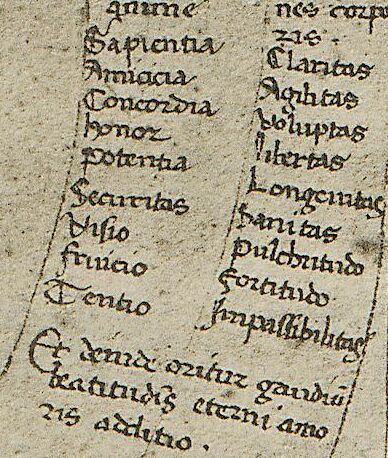 gnime
Sapientia
Amicicia
Concordia
honor
Potentia
Securitas
Visio
fruicio
Tentio
nes corpo
ris
Claritas
Agilitas
Voluptas
libertas
Longevitas
Sanitas
Pulchritudo
Fortitudo
Impassibilitas
Et deinde oritur gaudiū
beatitudīs eterni amo
ris additio .